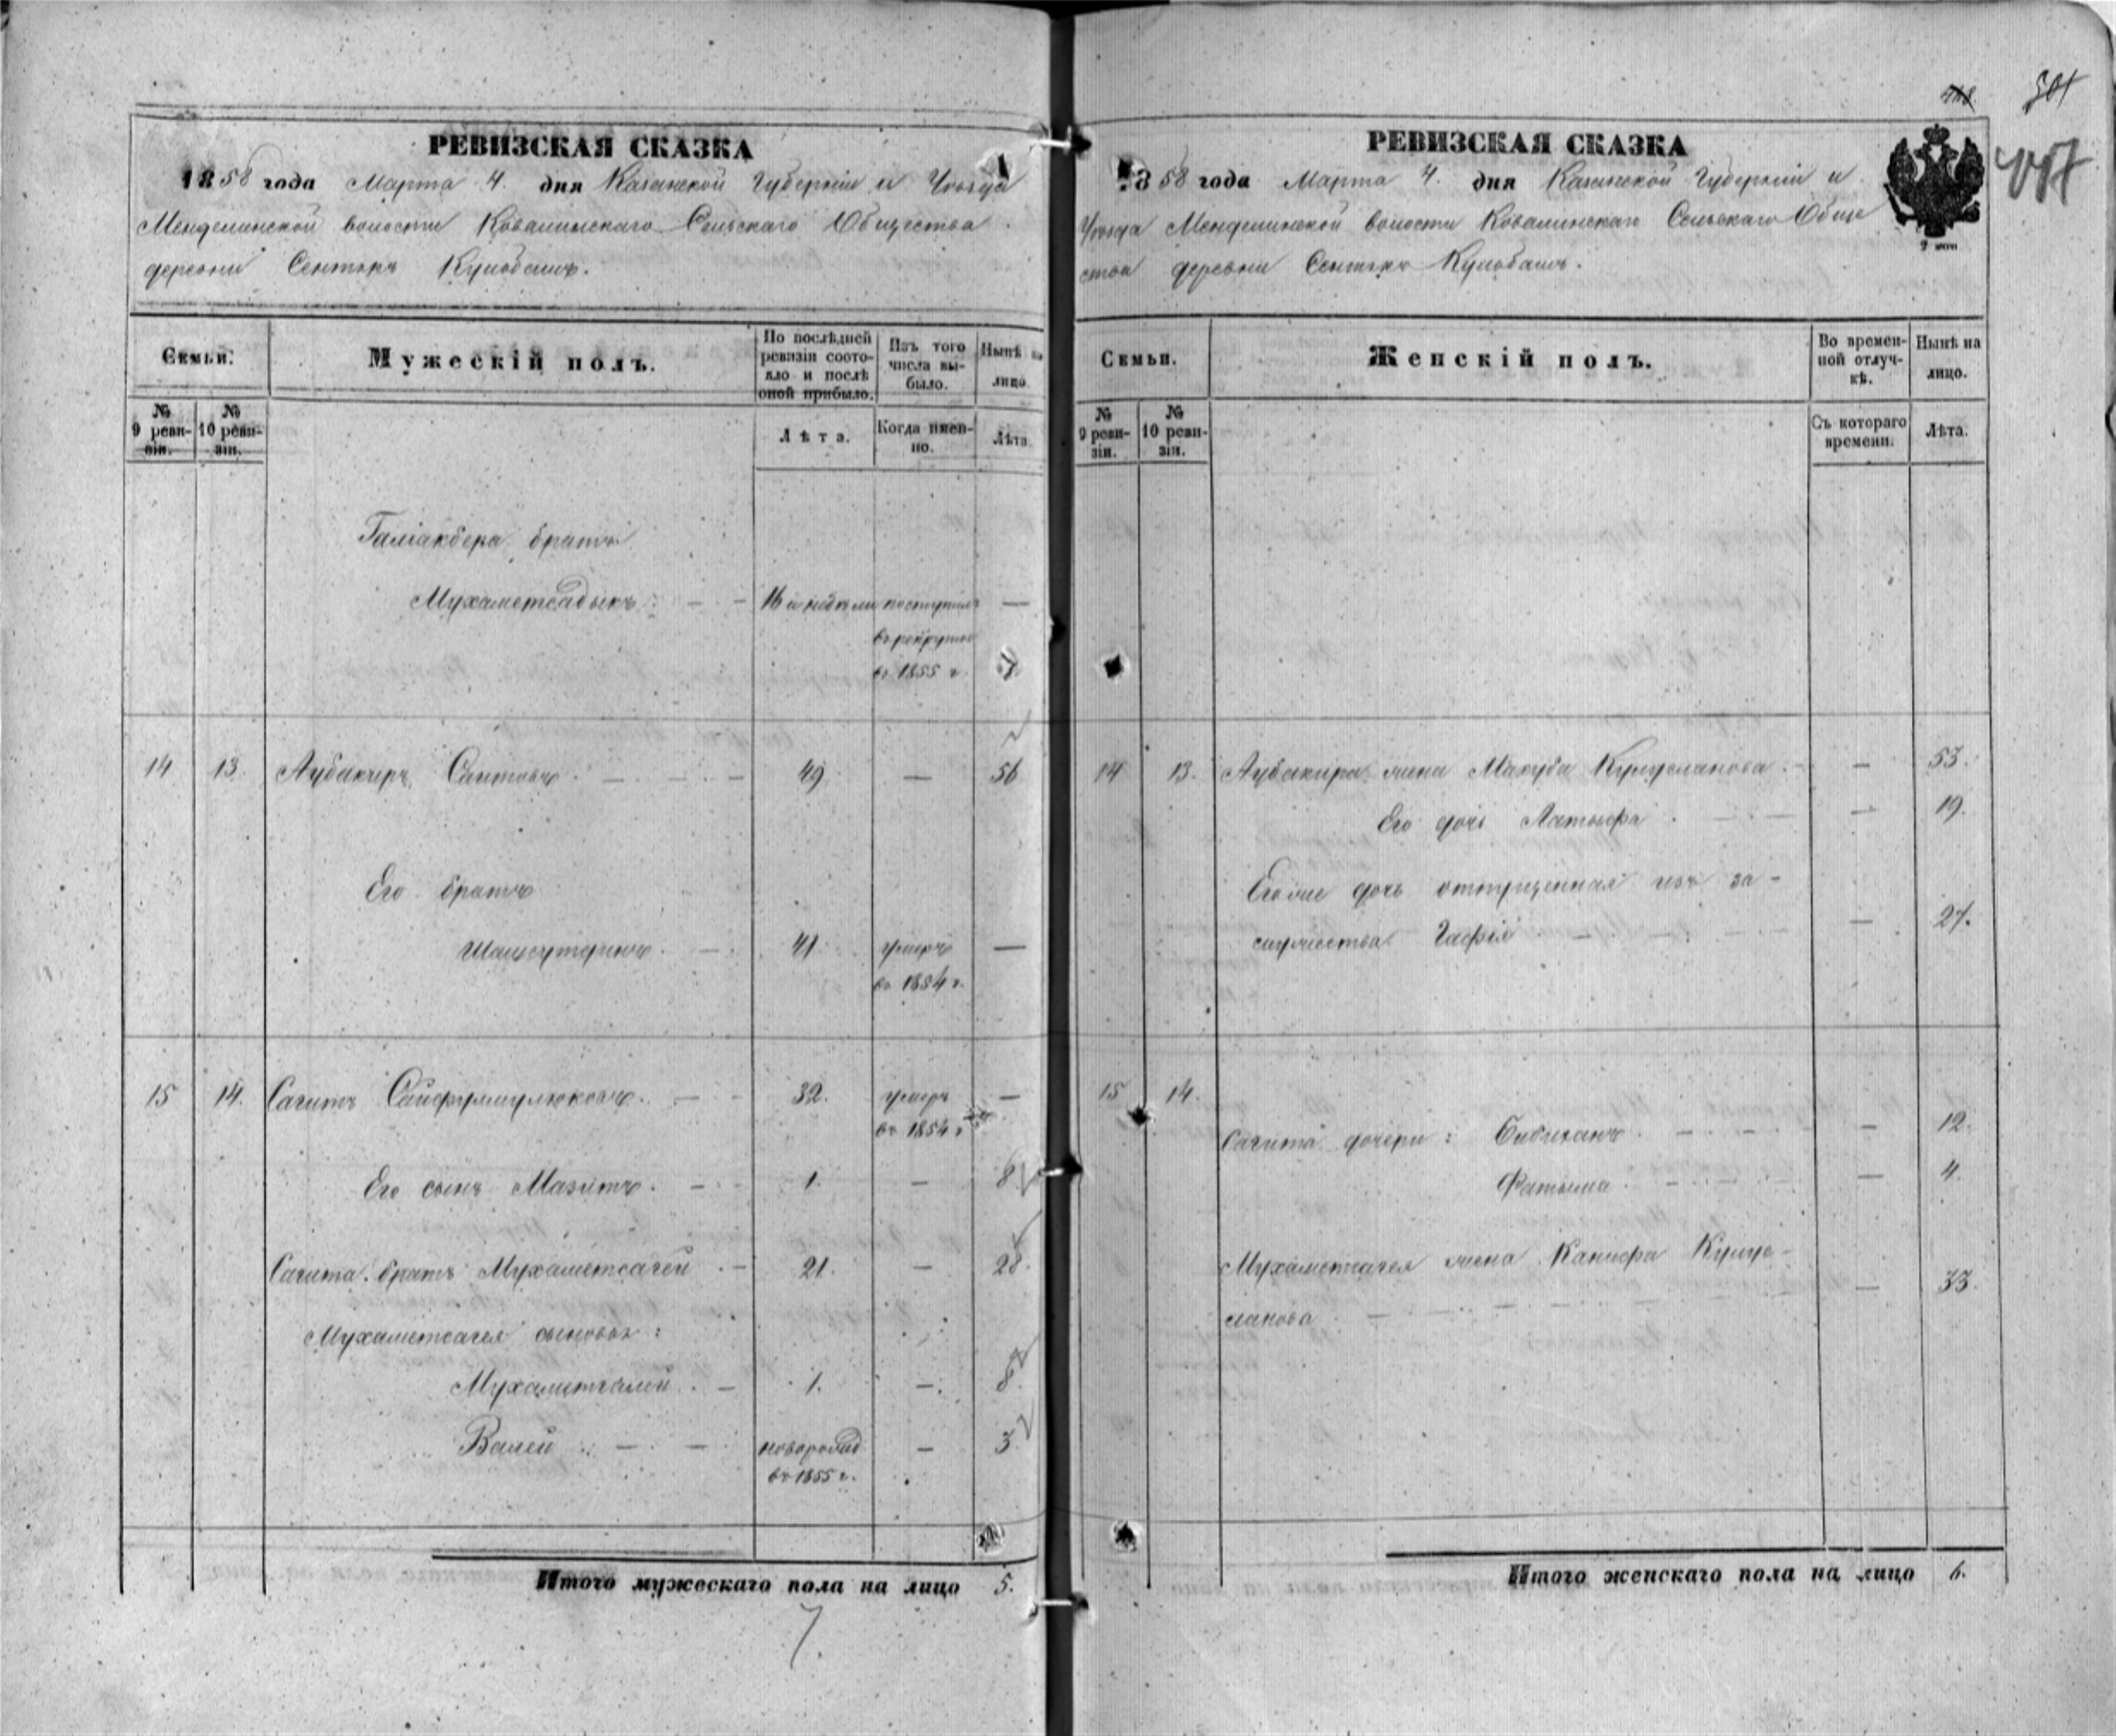 501
РЕВИЗСКАЯ СКАЗКА
1858 года Марта 4. дня Казанской Губерніи и Уѣзда
Менделинской волости Ковалинскаго Сельскаго Общества
деревни Сентякъ Кулобашъ.
Семьи.
Мужескій полъ.
По послѣдней ревизіи состояло и послѣ оной прибыло.
Изъ того числа выбыло.
Нынѣ на лицо.
№ 9 ревизіи.
№ 10 ревизіи.
Лѣта.
Когда именно.
Лѣта
Галіакбера братъ
Мухаметсадыкъ — — 16 и недѣли поступилъ —
въ рекруты
въ 1855 г.
14 13. Аубакиръ Саитовъ — — — 49 — 56
Его братъ
Шамсутдинъ — 41 умеръ —
въ 1854 г.
15 14. Сагитъ Сайфулмулюковъ — 32. умеръ —
въ 1854 г
Его сынъ Мазитъ. — 1. — 8
Сагита братъ Мухаметсагей — 21. — 28.
Мухаметсагея сыновья:
Мухаметгалей. — 1. — 8
Валей — — новорожд — 3
въ 1855 г.
Итого мужескаго пола на лицо 5.
7.
РЕВИЗСКАЯ СКАЗКА
1858 года Марта 4. дня Казанской Губерніи и
Уѣзда Менделинской волости Ковалинскаго Сельскаго Обще
ства деревни Сентякъ Кулобашъ.
Семьи.
Женскій полъ.
Во временной отлучкѣ.
Нынѣ на лицо.
№ 9 ревизіи.
№ 10 ревизіи.
Съ котораго времени.
Лѣта.
14 13. Аубакира жена Макуба Кулусланова — — 53.
Его дочь Латыфа — — 19.
Его же дочь отпущенная изъ за-
мужества Гафія — — 27.
15 14.
Сагита дочери: Бибиханъ — — 12.
Фатыма — — 4.
Мухаметсагея жена Канифа Кулус-
ланова — — 33.
Итого женскаго пола на лицо 6.